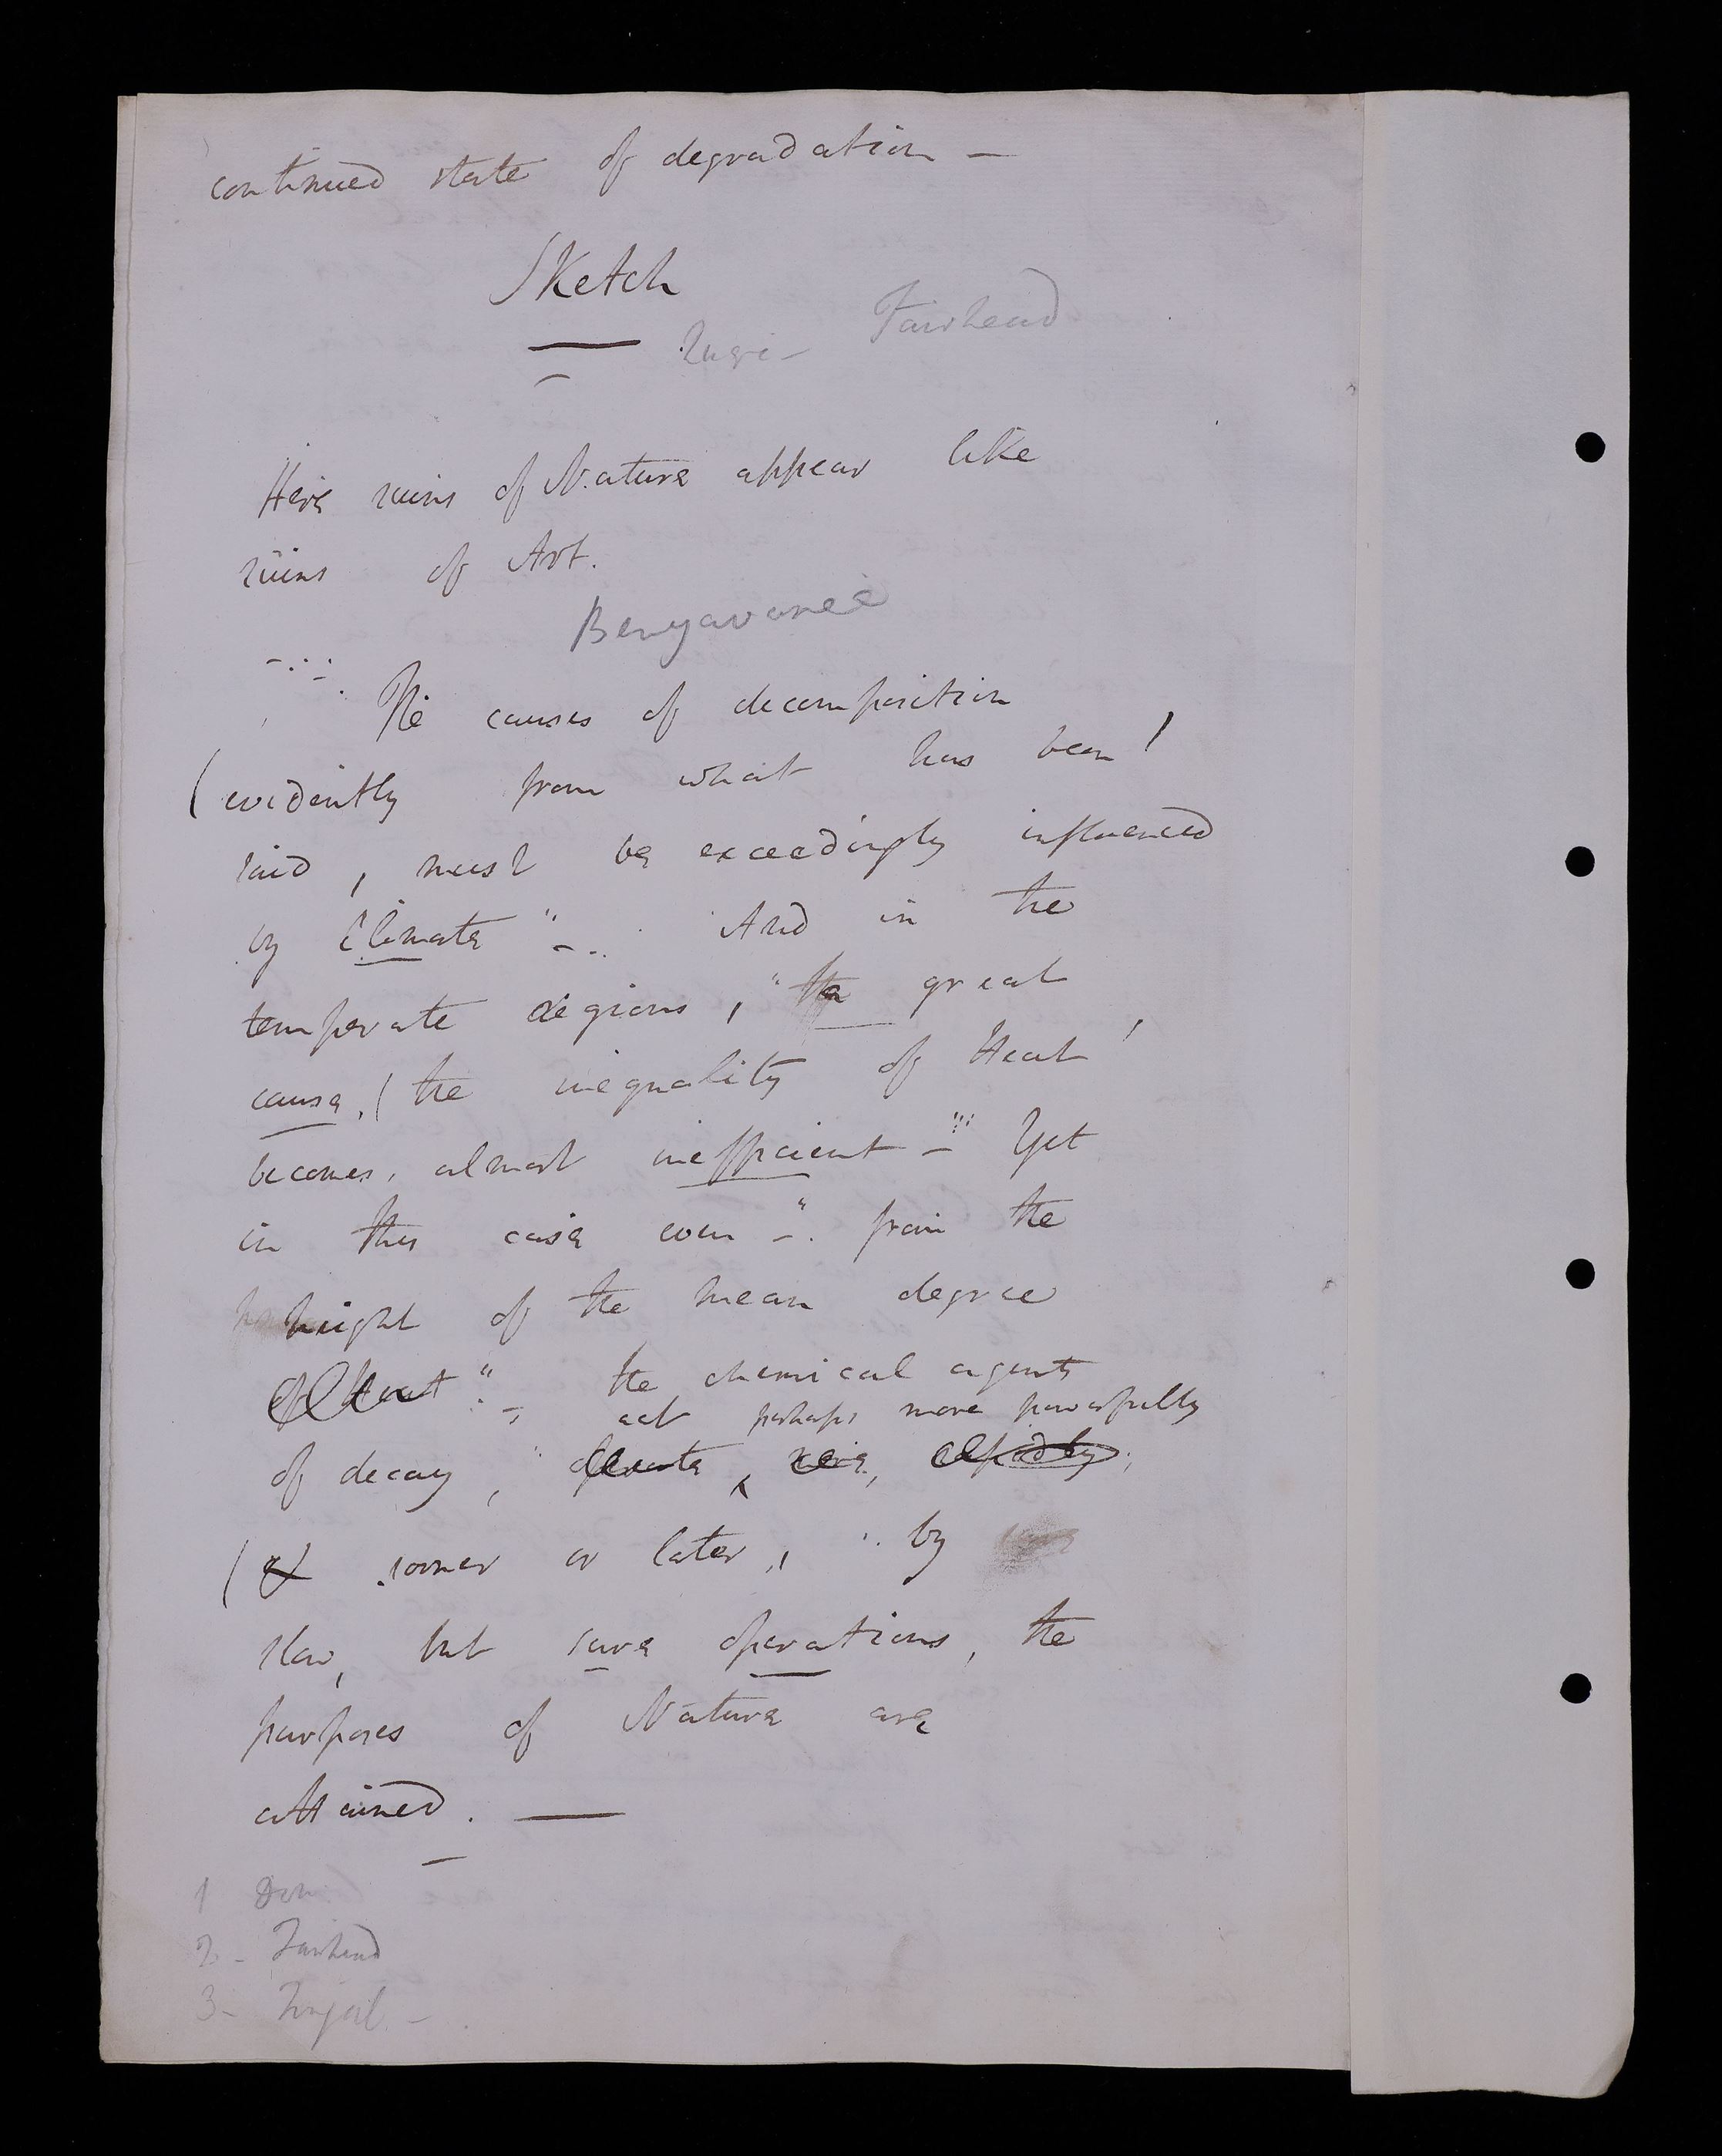 continued state of degradation –
Sketch
Fairhead
Here ruins of Nature appear like
ruins of Art.
Bengavanee
The causes of decomposition
(evidently from what has been
said, must be exceedingly influenced
by Climate" – And in the
temperate regions, "the great
cause, (the inequality of Heat)
becomes, almost inefficient –" Yet
in this case even –" from the
height of the mean degree
of Heat" – the chemical agents
act perhaps more powerfully
of decay, operate, more, rapidly;
(& sooner or later, by
slow, but sure operations, the
purposes of Nature are
attained. —
1
2 – Fairhead
3 –